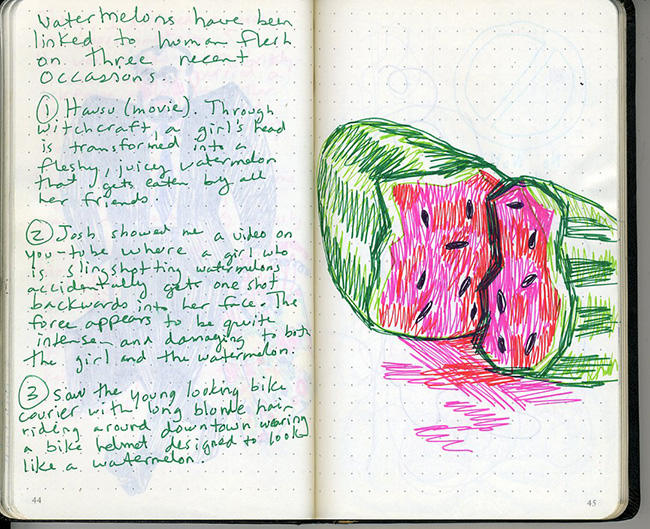 Watermelons have been
linked to human flesh
on three recent
occassions.
① Hausu (movie). Through
witchcraft, a girl's head
is transformed into a
fleshy, juicy watermelon
that gets eaten by all
her friends.
② Josh showed me a video on
you-tube where a girl who
is slingshotting watermelons
accidentally gets one shot
backwards into her face. The
force appears to be quite
intense and damaging to both
the girl and the watermelon.
③ Saw the young looking bike
courier with long blonde hair
riding around downtown wearing
a bike helmet designed to look
like a watermelon.
44
45